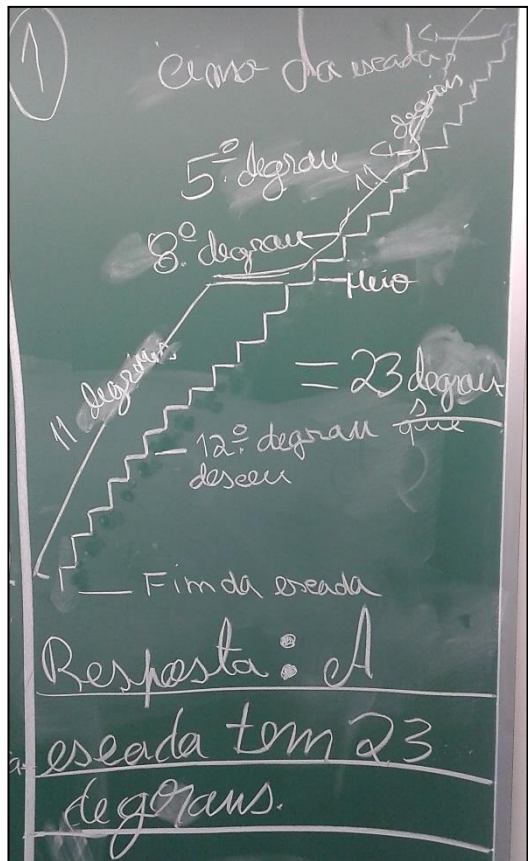 1
Cimo da escada
11 degraus
5º degrau
8º degrau
Meio
11 degraus
= 23 degraus
que
12º degrau
desceu
Fim da escada
Resposta: A
escada tem 23
degraus.